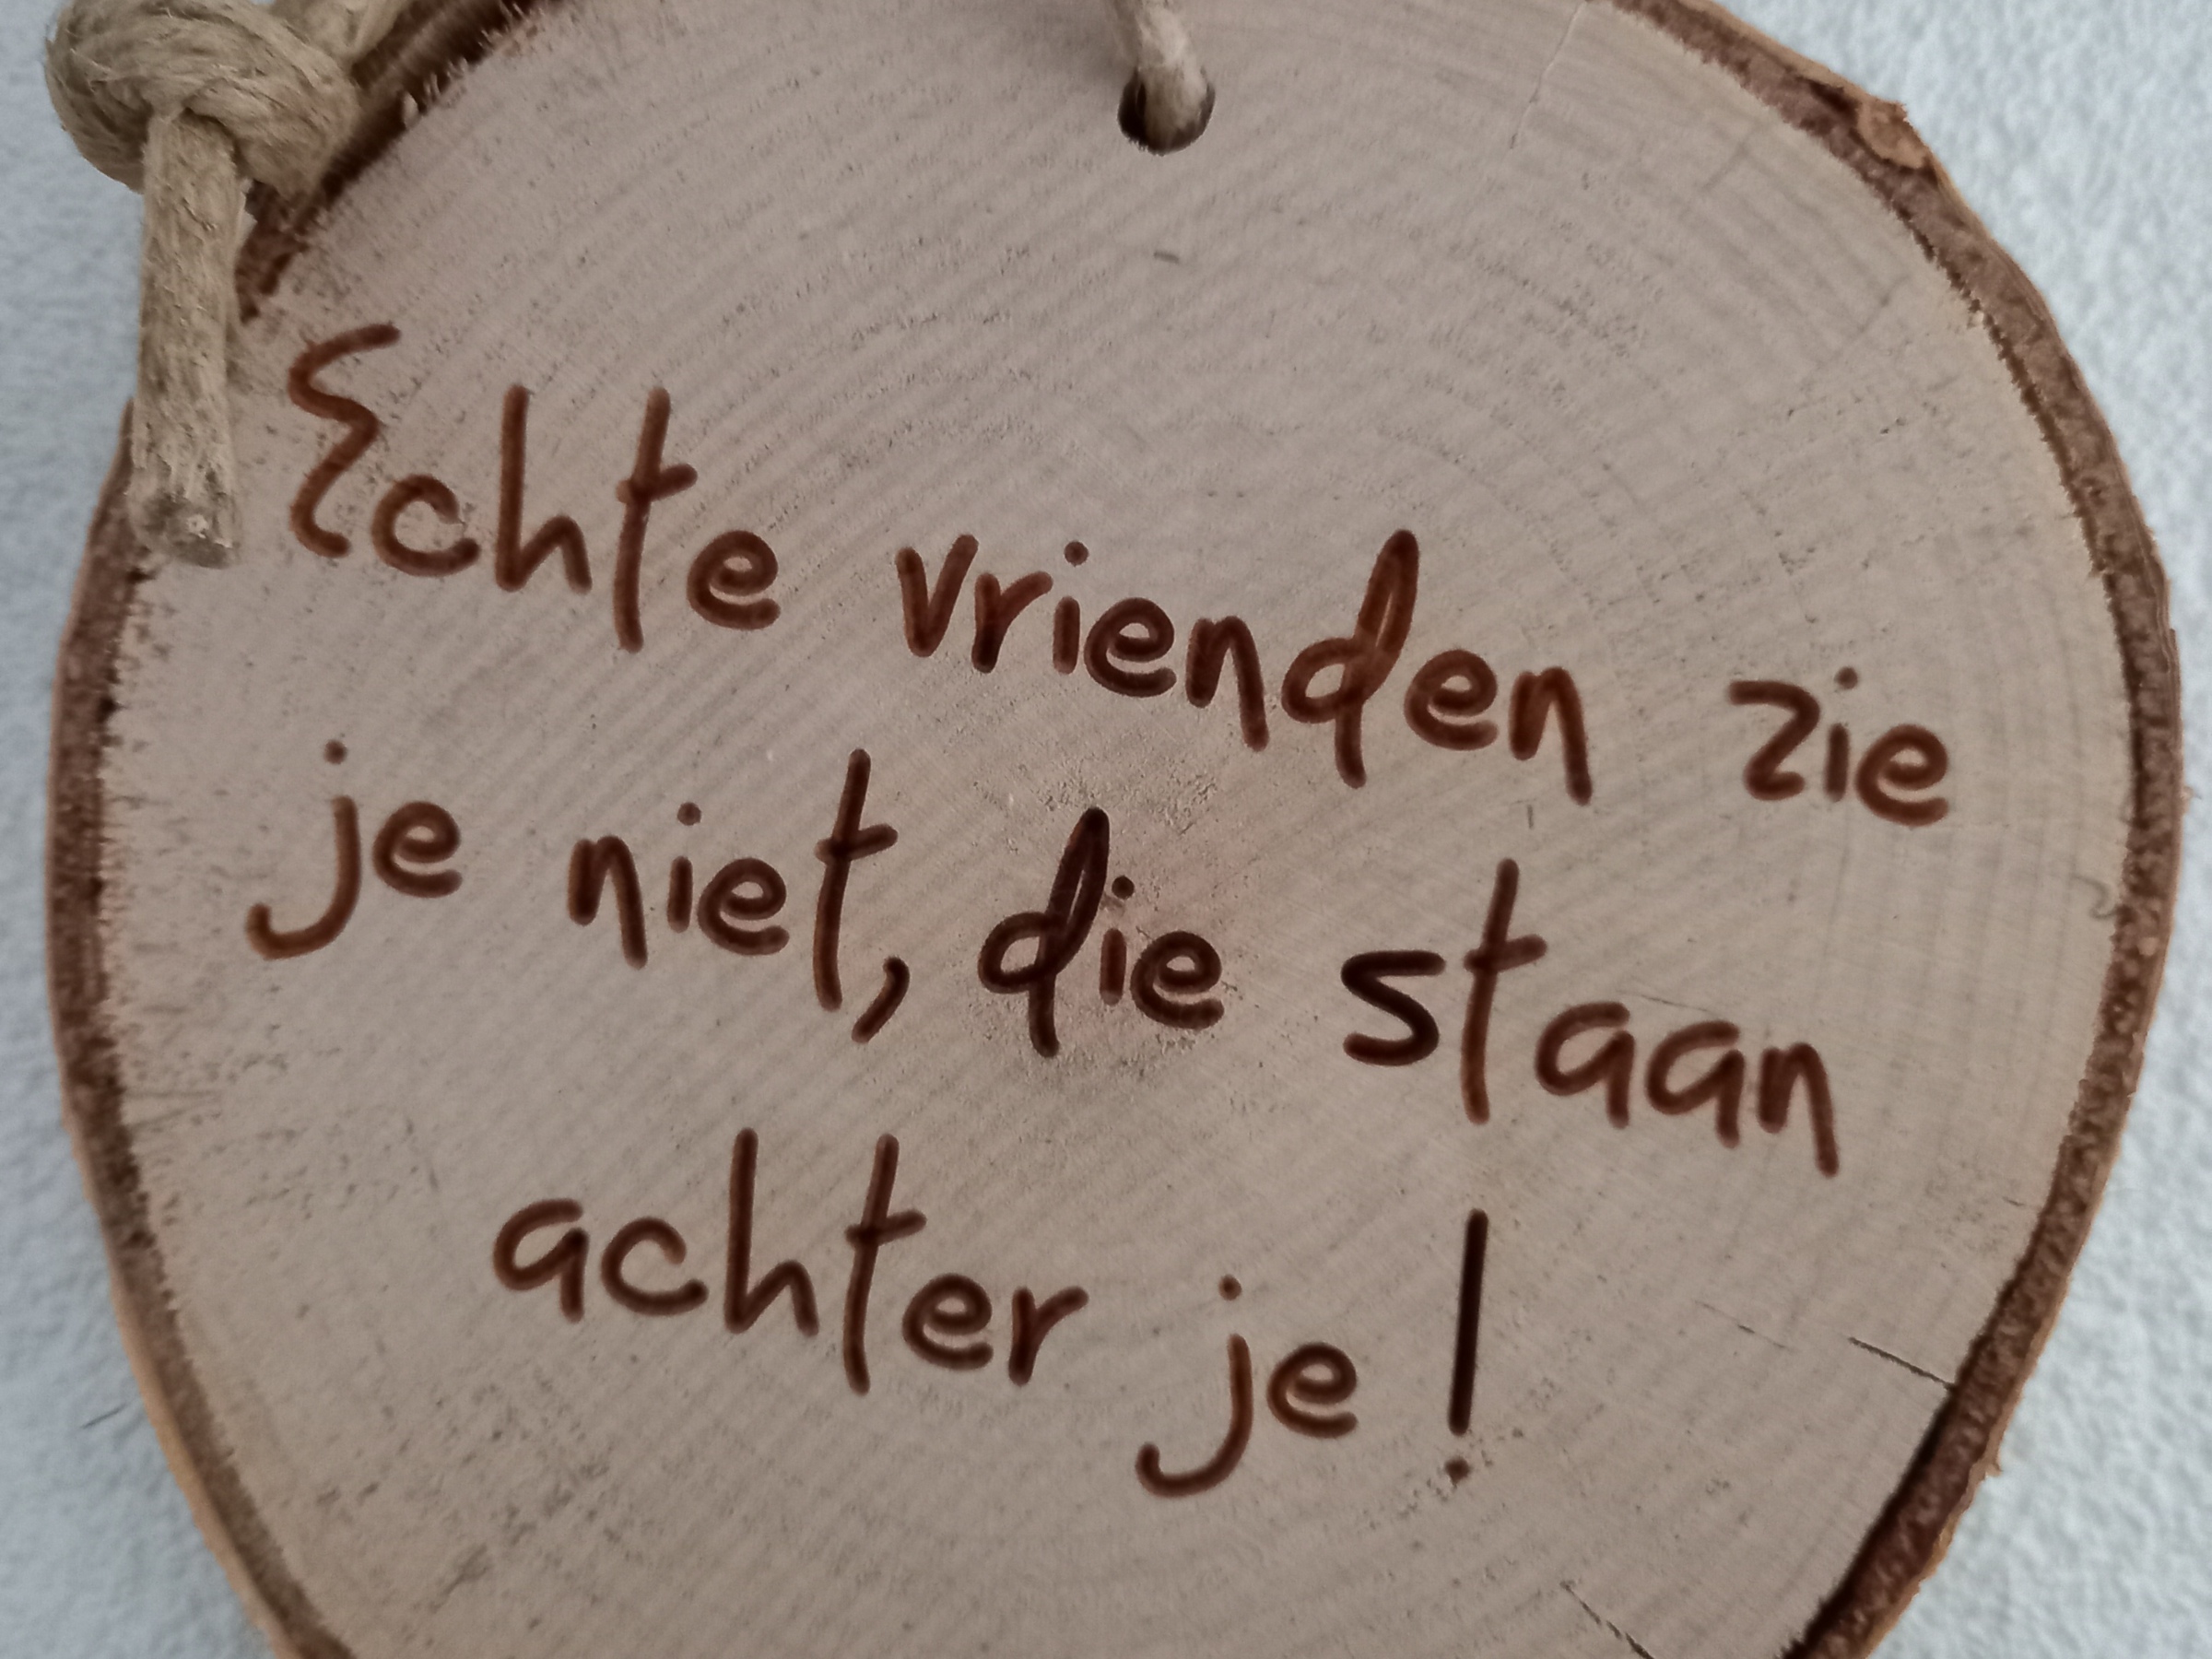 Echte vrienden zie
je niet, die staan
achter je!